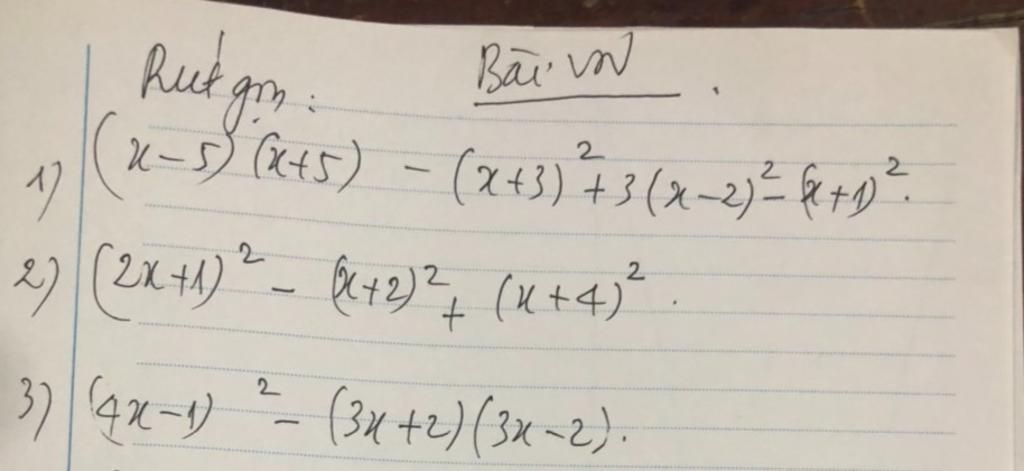 Rút gọn: Bài VN.
1) (x-5)(x+5) - (x+3)² + 3(x-2)² - (x+1)².
2) (2x+1)² - (x+2)² + (x+4)².
3) (4x-1)² - (3x+2)(3x-2).